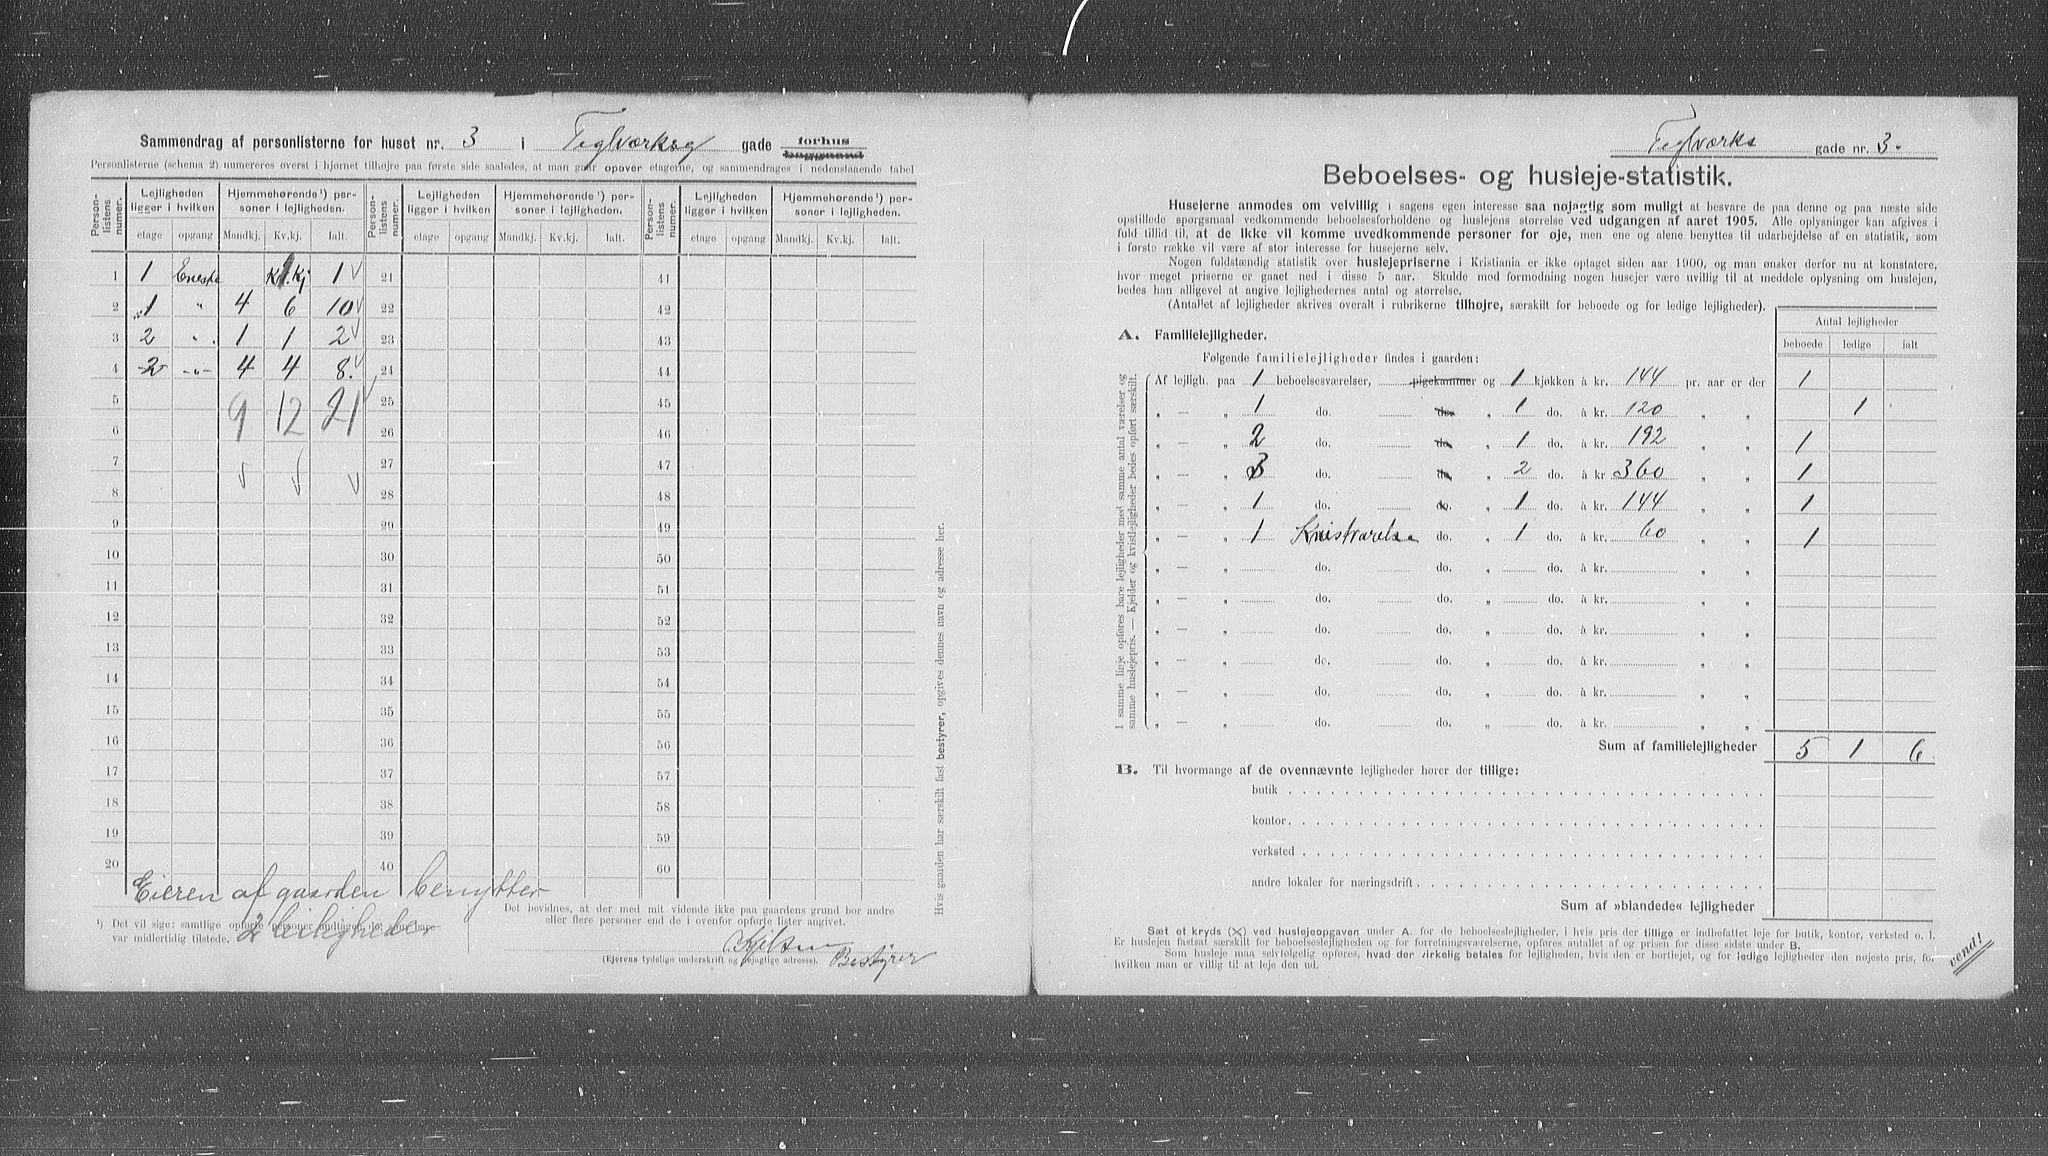 Sammendrag af personlisterne for huset nr. 3 i Teglværksg gade forhus baggaard
Personlisterne (schema 2) numereres øverst i hjørnet tilhøjre paa første side saaledes, at man gaar opover etagerne, og sammendrages i nedenstaaende tabel
Personlistens numer. Lejligheden ligger i hvilken Hjemmehørende¹) personer i lejligheden. Personlistens numer. Lejligheden ligger i hvilken Hjemmehørende¹) personer i lejligheden. Personlistens numer. Lejligheden ligger i hvilken Hjemmehørende¹) personer i lejligheden.
etage opgang Mandkj. Kv.kj. Ialt. etage opgang Mandkj. Kv.kj. Ialt. etage opgang Mandkj. Kv.kj. Ialt.
1 1 Eneste 1 Kv. Kj 1 21 41
2 1 " 4 6 10 22 42
3 2 " 1 1 2 23 43
4 2 -"- 4 4 8. 24 44
5 9 12 21 25 45
6 26 46
7 27 47
8 28 48
9 29 49
10 30 50
11 31 51
12 32 52
13 33 53
14 34 54
15 35 55
16 36 56
17 37 57
18 38 58
19 39 59
20 40 60
Eieren af gaarden benytter
2 leiligheder
¹) Det vil sige: samtlige opførte personer
var midlertidig tilstede.
Det bevidnes, at der med mit vidende ikke paa gaardens grund bor andre
eller flere personer end de i ovenfor opførte lister angivet.
Bestyrer
(Ejerens tydelige underskrift og nøjagtige adresse).
Hvis gaarden har særskilt fast bestyrer, opgives dennes navn og adresse her.
Teglværks gade nr. 3.
Beboelses- og husleje-statistik.
Husejerne anmodes om velvillig i sagens egen interesse saa nøjagtig som muligt at besvare de paa denne og paa næste side
opstillede spørgsmaal vedkommende beboelsesforholdene og huslejens størrelse ved udgangen af aaret 1905. Alle oplysninger kan afgives i
fuld tillid til, at de ikke vil komme uvedkommende personer for øje, men ene og alene benyttes til udarbejdelse af en statistik, som
i første række vil være af stor interesse for husejerne selv.
Nogen fuldstændig statistik over huslejepriserne i Kristiania er ikke optaget siden aar 1900, og man ønsker derfor nu at konstatere,
hvor meget priserne er gaaet ned i disse 5 aar. Skulde mod formodning nogen husejer være uvillig til at meddele oplysning om huslejen,
bedes han alligevel at angive lejlighedernes antal og størrelse.
(Antallet af lejligheder skrives overalt i rubrikerne tilhøjre, særskilt for beboede og for ledige lejligheder).
Antal lejligheder
beboede ledige ialt
A. Familielejligheder.
Følgende familielejligheder findes i gaarden:
I samme linje opføres bare lejligheder med samme antal værelser og
samme huslejepris. — Kjelder og kvistlejligheder bedes opført særskilt.
Af lejligh. paa 1 beboelsesværelser, pigekammer og 1 kjøkken à kr. 144 pr. aar er der 1
„ — „ 1 do. do. „ 1 do. à kr. 120 „ „ 1
„ — „ 2 do. do. „ 1 do. à kr. 192 „ „ 1
„ — „ 3 do. do. „ 2 do. à kr 360 „ „ 1
„ — „ 1 do. do. „ 1 do. à kr. 144 „ „ 1
„ — „ 1 Kvistværelse do. „ 1 do. à kr. 60 „ „ 1
„ — „ do. do. „ do. à kr. „ „
„ — „ do. do. „ do. à kr. „ „
„ — „ do. do. „ do. à kr. „ „
„ — „ do. do. „ do. à kr. „ „
„ — „ do. do. „ do. à kr. „ „
„ — „ do. do. „ do. à kr. „ „
Sum af familielejligheder 5 1 6
B. Til hvormange af de ovennævnte lejligheder hører der tillige:
butik
kontor
verksted
andre lokaler for næringsdrift
Sum af »blandede« lejligheder
Sæt et kryds (×) ved huslejeopgaven under A. for de beboelseslejligheder, i hvis pris der tillige er indbefattet leje for butik, kontor, verksted o. l.
Er huslejen fastsat særskilt for beboelseslejligheden og for forretningsværelserne, opføres antallet af og prisen for disse sidste under B.
Som husleje maa selvfølgelig opføres, hvad der virkelig betales for lejligheden, hvis den er bortlejet, og for ledige lejligheder den nøjeste pris, for
hvilken man er villig til at leje den ud.
vend!